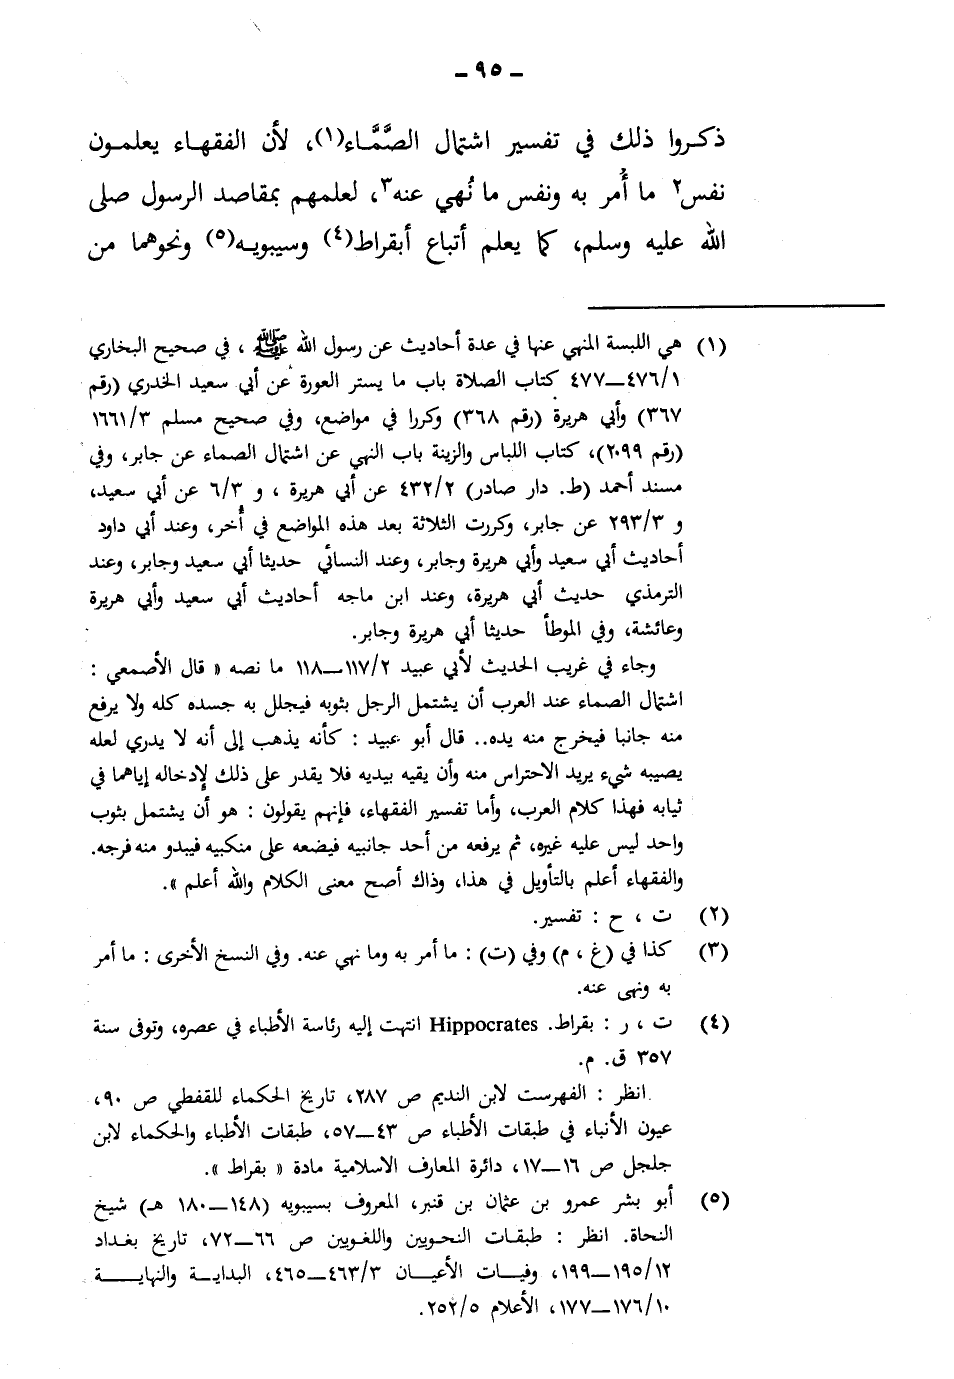 ـ ٩٥ ـ
ذكـروا ذلك في تفسير اشتمال الصَّمَّاء(١)، لأن الفقهـاء يعلمـون
نفس٢ ما أُمر به ونفس ما نُهي عنه٣، لعلمهم بمقاصد الرسول صلى
الله عليه وسلم، كما يعلم أتباع أبقراط(٤) وسيبويـه(٥) ونحوهما من
(١) هي اللبسة المنهي عنها في عدة أحاديث عن رسول الله ﷺ ، في صحيح البخاري
٤٧٦/١ــ٤٧٧ كتاب الصلاة باب ما يستر العورة عن أبي سعيد الخدري (رقم
٣٦٧) وأبي هريرة (رقم ٣٦٨) وكررا في مواضع، وفي صحيح مسلم ١٦٦١/٣
(رقم ٢٠٩٩)، كتاب اللباس والزينة باب النهي عن اشتمال الصماء عن جابر، وفي
مسند أحمد (ط. دار صادر) ٤٣٢/٢ عن أبي هريرة ، و ٦/٣ عن أبي سعيد،
و ٢٩٣/٣ عن جابر، وكررت الثلاثة بعد هذه المواضع في أُخر، وعند أبي داود
أحاديث أبي سعيد وأبي هريرة وجابر، وعند النسائي حديثا أبي سعيد وجابر، وعند
الترمذي حديث أبي هريرة، وعند ابن ماجه أحاديث أبي سعيد وأبي هريرة
وعائشة، وفي الموطأ حديثا أبي هريرة وجابر.
وجاء في غريب الحديث لأبي عبيد ١١٧/٢ــ١١٨ ما نصه « قال الأصمعي :
اشتمال الصماء عند العرب أن يشتمل الرجل بثوبه فيجلل به جسده كله ولا يرفع
منه جانبا فيخرج منه يده.. قال أبو عبيد : كأنه يذهب إلى أنه لا يدري لعله
يصيبه شيء يريد الاحتراس منه وأن يقيه بيديه فلا يقدر على ذلك لإدخاله إياهما في
ثيابه فهذا كلام العرب، وأما تفسير الفقهاء، فإنهم يقولون : هو أن يشتمل بثوب
واحد ليس عليه غيره، ثم يرفعه من أحد جانبيه فيضعه على منكبيه فيبدو منه فرجه.
والفقهاء أعلم بالتأويل في هذا، وذاك أصح معنى الكلام والله أعلم ».
(٢) ت ، ح : تفسير.
(٣) كذا في (غ ، م) وفي (ت) : ما أمر به وما نهي عنه. وفي النسخ الأخرى : ما أمر
به ونهى عنه.
(٤) ت ، ر : بقراط. Hippocrates انتهت إليه رئاسة الأطباء في عصره، وتوفى سنة
٣٥٧ ق. م.
انظر : الفهرست لابن النديم ص ٢٨٧، تاريخ الحكماء للقفطي ص ٩٠،
عيون الأنباء في طبقات الأطباء ص ٤٣ــ٥٧، طبقات الأطباء والحكماء لابن
جلجل ص ١٦ــ١٧، دائرة المعارف الاسلامية مادة « بقراط ».
(٥) أبو بشر عمرو بن عثمان بن قنبر، المعروف بسيبويه (١٤٨ــ١٨٠ هـ) شيخ
النحاة. انظر : طبقـات النحـويين واللغـويين ص ٦٦ــ٧٢، تاريخ بغـداد
١٩٥/١٢ــ١٩٩، وفيـات الأعيـان ٤٦٣/٣ــ٤٦٥، البدايـة والنهايـة
١٧٦/١٠ــ١٧٧، الأعلام ٢٥٢/٥.